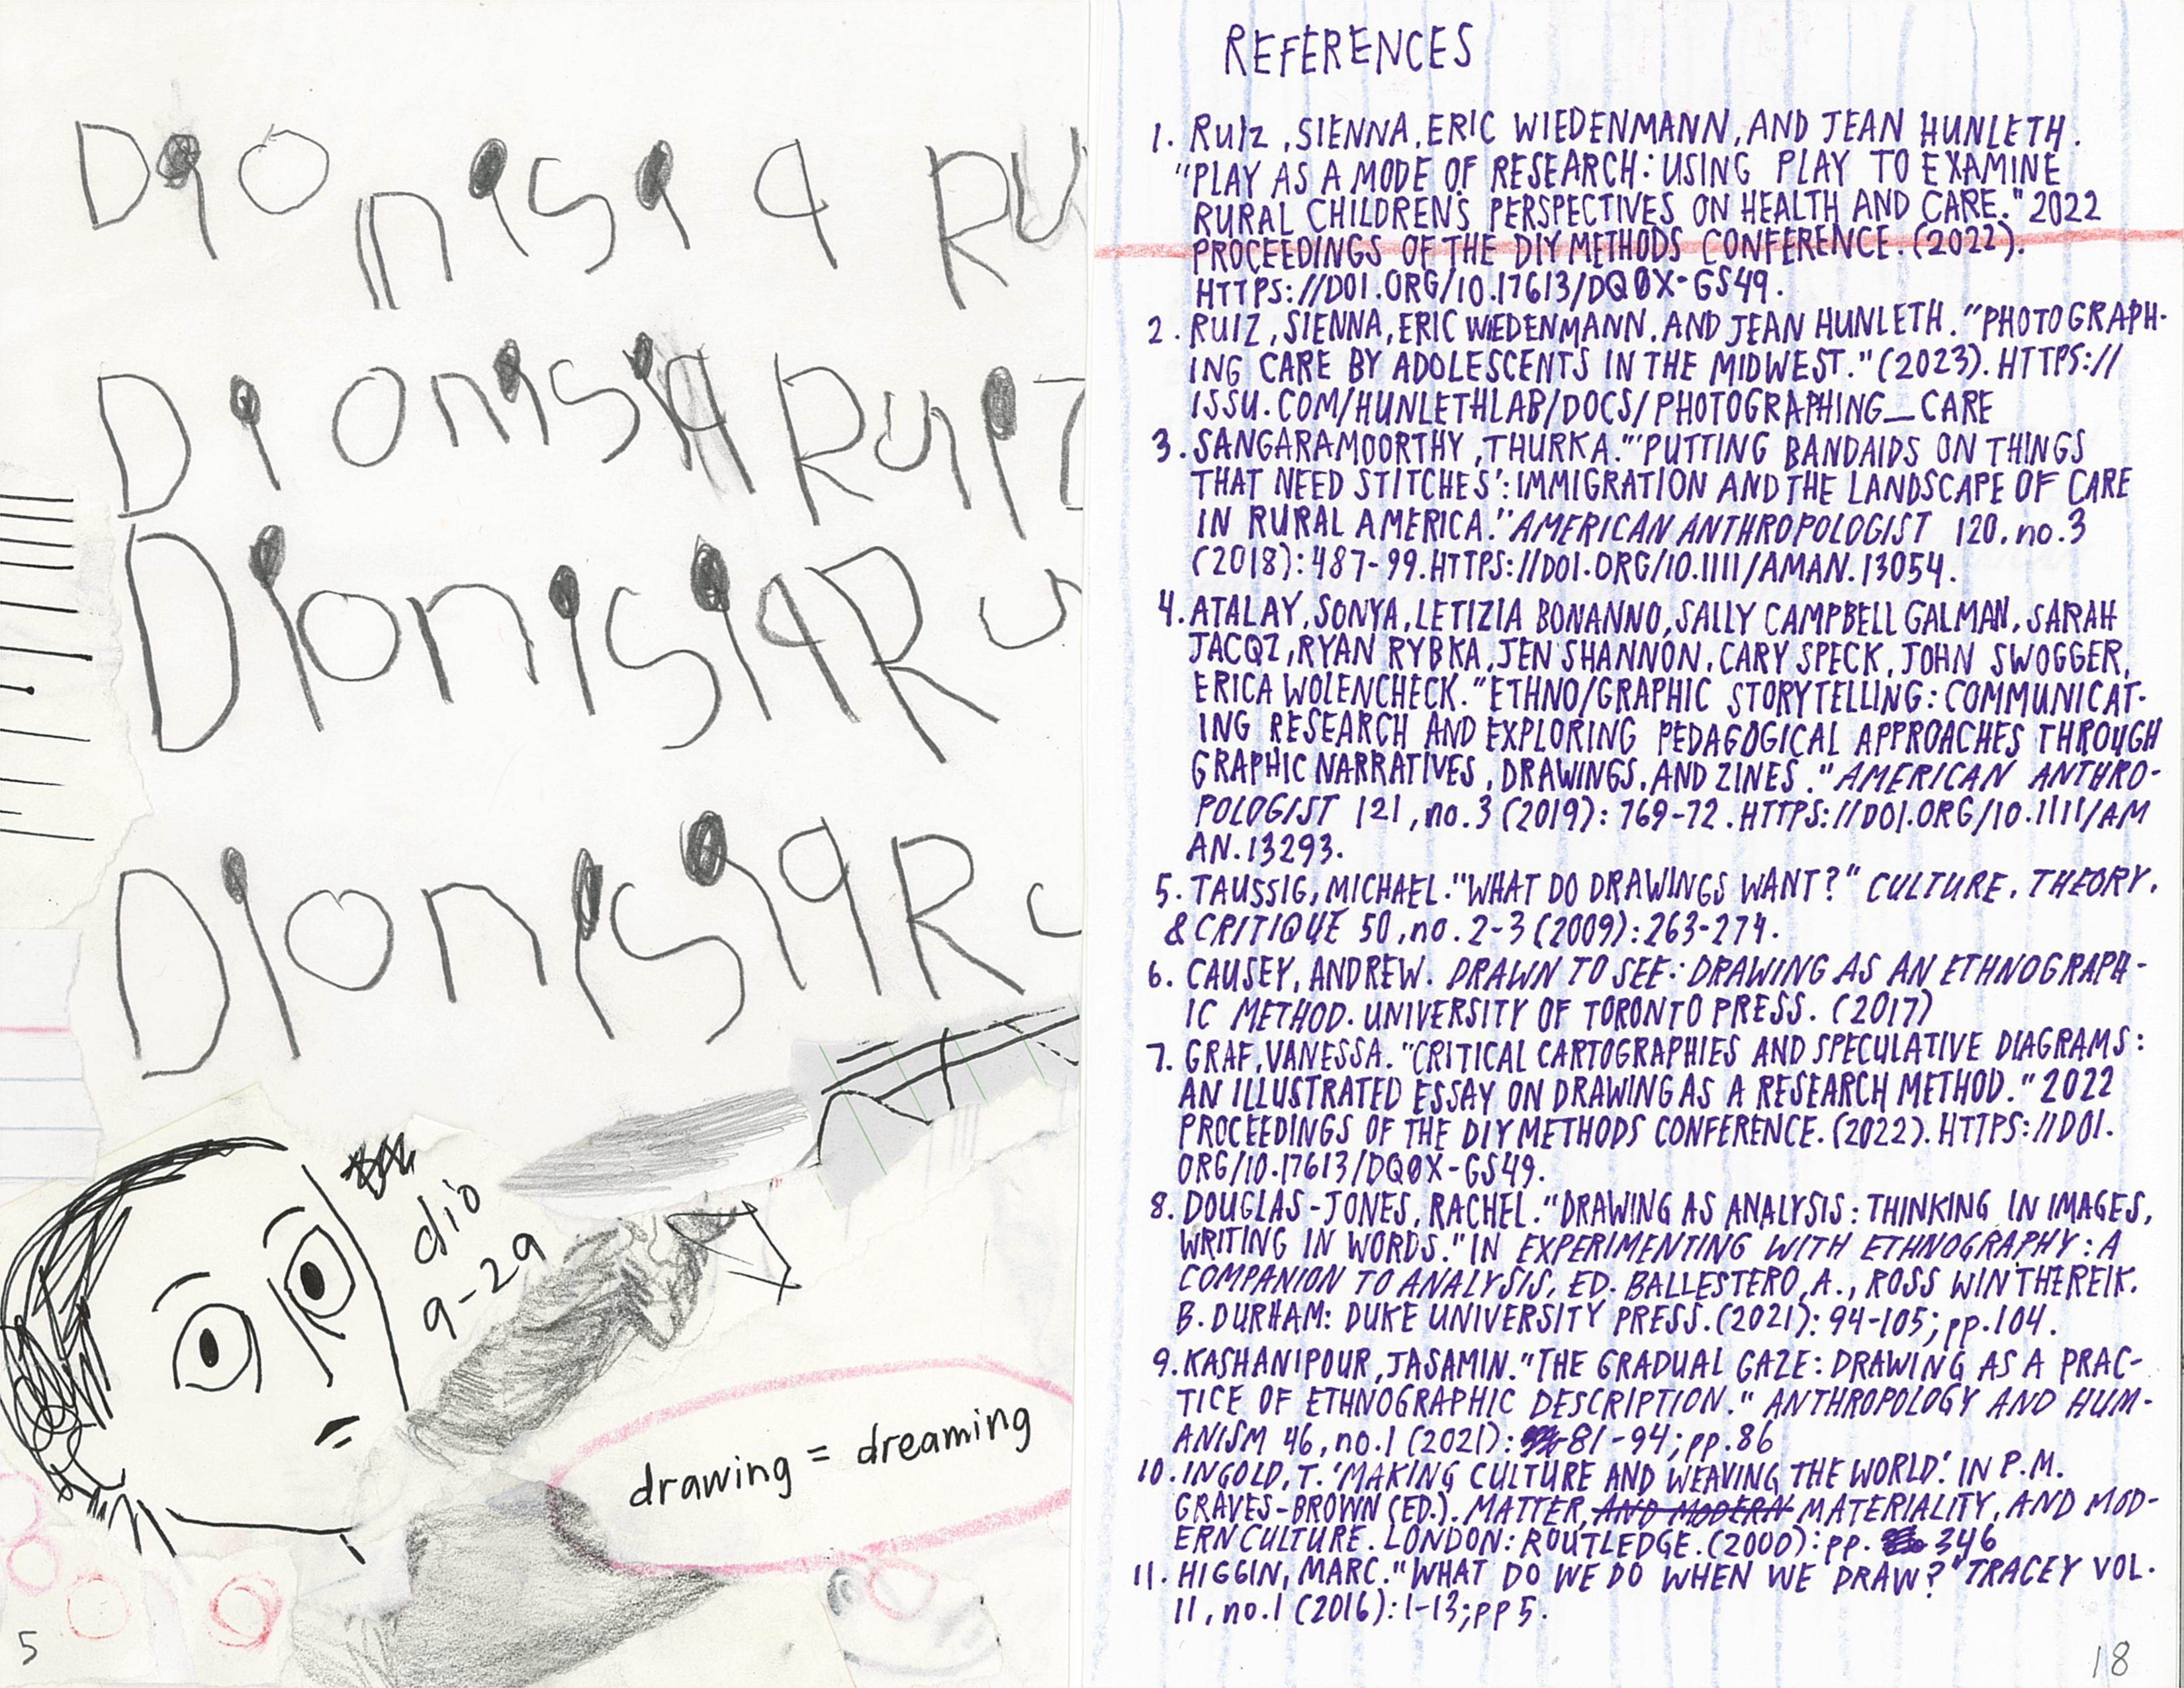 Dionisia Ru
Dionisia Ruiz
Dionisia Ru
Dionisia Ru
dio
9-29
drawing = dreaming
5
REFERENCES
1. RUIZ, SIENNA, ERIC WIEDENMANN, AND JEAN HUNLETH.
"PLAY AS A MODE OF RESEARCH: USING PLAY TO EXAMINE
RURAL CHILDREN'S PERSPECTIVES ON HEALTH AND CARE." 2022
PROCEEDINGS OF THE DIY METHODS CONFERENCE. (2022).
HTTPS://DOI.ORG/10.17613/DQ0X-GS49.
2. RUIZ, SIENNA, ERIC WIEDENMANN, AND JEAN HUNLETH. "PHOTOGRAPH-
ING CARE BY ADOLESCENTS IN THE MIDWEST." (2023). HTTPS://
ISSU.COM/HUNLETHLAB/DOCS/PHOTOGRAPHING_CARE
3. SANGARAMOORTHY, THURKA. "'PUTTING BANDAIDS ON THINGS
THAT NEED STITCHES': IMMIGRATION AND THE LANDSCAPE OF CARE
IN RURAL AMERICA." AMERICAN ANTHROPOLOGIST 120, no.3
(2018): 487-99. HTTPS://DOI.ORG/10.1111/AMAN.13054.
4. ATALAY, SONYA, LETIZIA BONANNO, SALLY CAMPBELL GALMAN, SARAH
JACQZ, RYAN RYBKA, JEN SHANNON, CARY SPECK, JOHN SWOGGER,
ERICA WOLENCHECK. "ETHNO/GRAPHIC STORYTELLING: COMMUNICAT-
ING RESEARCH AND EXPLORING PEDAGOGICAL APPROACHES THROUGH
GRAPHIC NARRATIVES, DRAWINGS, AND ZINES." AMERICAN ANTHRO-
POLOGIST 121, no.3 (2019): 769-72. HTTPS://DOI.ORG/10.1111/AM
AN.13293.
5. TAUSSIG, MICHAEL. "WHAT DO DRAWINGS WANT?" CULTURE, THEORY,
& CRITIQUE 50, no. 2-3 (2009): 263-274.
6. CAUSEY, ANDREW. DRAWN TO SEE: DRAWING AS AN ETHNOGRAPH-
IC METHOD. UNIVERSITY OF TORONTO PRESS. (2017)
7. GRAF, VANESSA. "CRITICAL CARTOGRAPHIES AND SPECULATIVE DIAGRAMS:
AN ILLUSTRATED ESSAY ON DRAWING AS A RESEARCH METHOD." 2022
PROCEEDINGS OF THE DIY METHODS CONFERENCE. (2022). HTTPS://DOI.
ORG/10.17613/DQ0X-GS49.
8. DOUGLAS-JONES, RACHEL. "DRAWING AS ANALYSIS: THINKING IN IMAGES,
WRITING IN WORDS." IN EXPERIMENTING WITH ETHNOGRAPHY: A
COMPANION TO ANALYSIS, ED. BALLESTERO, A., ROSS WINTHEREIK.
B. DURHAM: DUKE UNIVERSITY PRESS. (2021): 94-105; pp.104.
9. KASHANIPOUR, JASAMIN. "THE GRADUAL GAZE: DRAWING AS A PRAC-
TICE OF ETHNOGRAPHIC DESCRIPTION." ANTHROPOLOGY AND HUM-
ANISM 46, no.1 (2021): 81-94; pp.86
10. INGOLD, T. 'MAKING CULTURE AND WEAVING THE WORLD'. IN P.M.
GRAVES-BROWN (ED.). MATTER, AND MODERN MATERIALITY, AND MOD-
ERN CULTURE. LONDON: ROUTLEDGE. (2000): pp. 346
11. HIGGIN, MARC. "WHAT DO WE DO WHEN WE DRAW?" TRACEY VOL.
11, no.1 (2016): 1-13; pp 5.
18